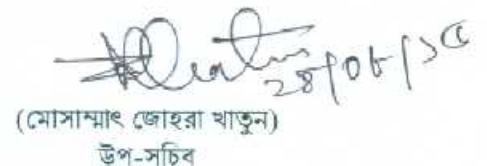 ২৪/০৮/১৫
(মোসাম্মাৎ জোহরা খাতুন)
উপ-সচিব